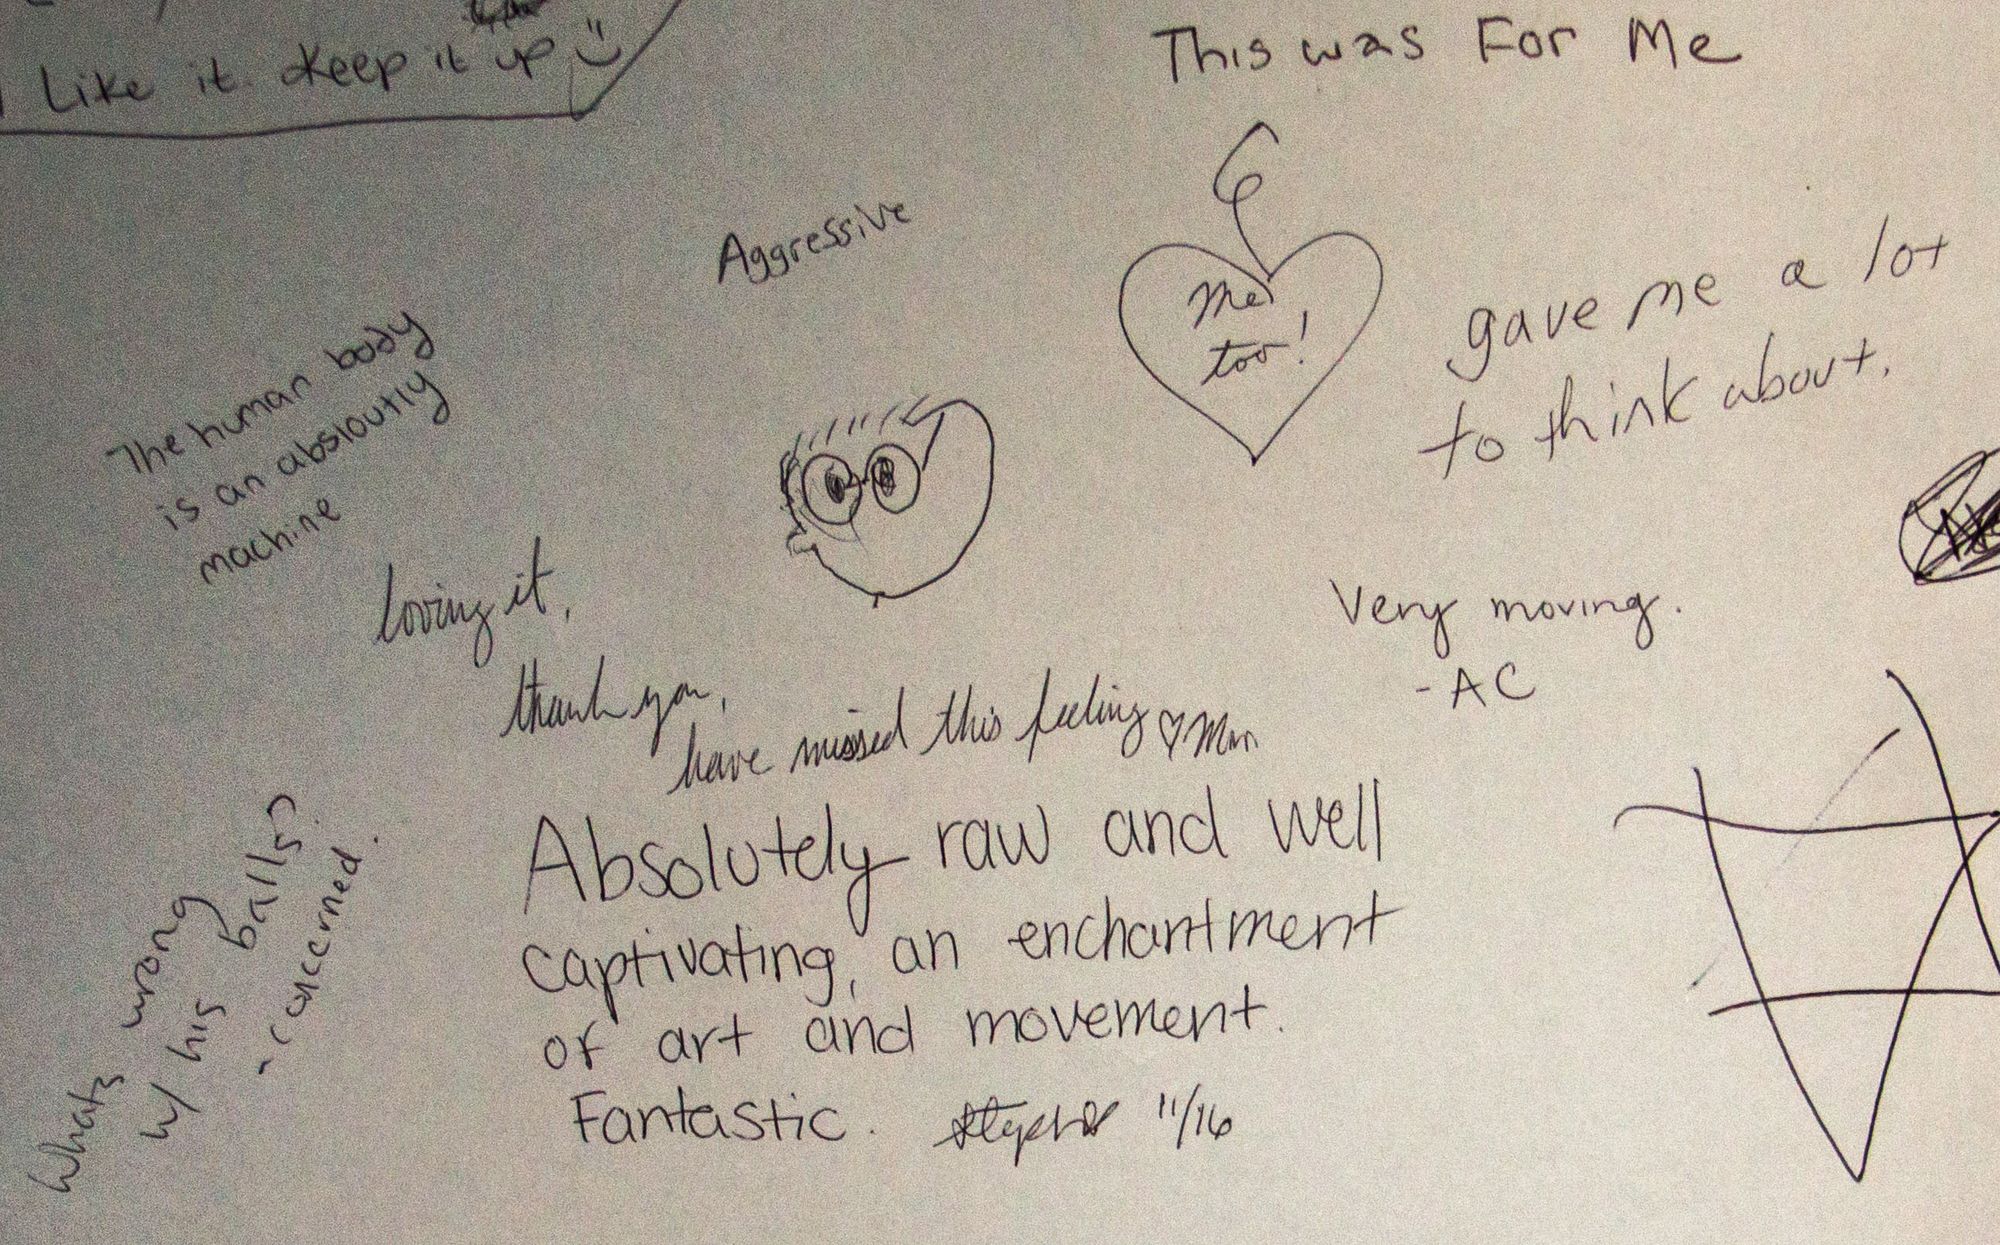 Like it. Keep it up
This was For Me
Aggressive
Me
too!
gave me a lot
to think about.
The human body
is an absloutly
machine
loving it,
thank you,
have missed this feeling
Very moving.
-AC
Absolutely raw and well
captivating, an enchantment
of art and movement.
Fantastic. 11/16
Whats wrong
w/ his balls?
-concerned.